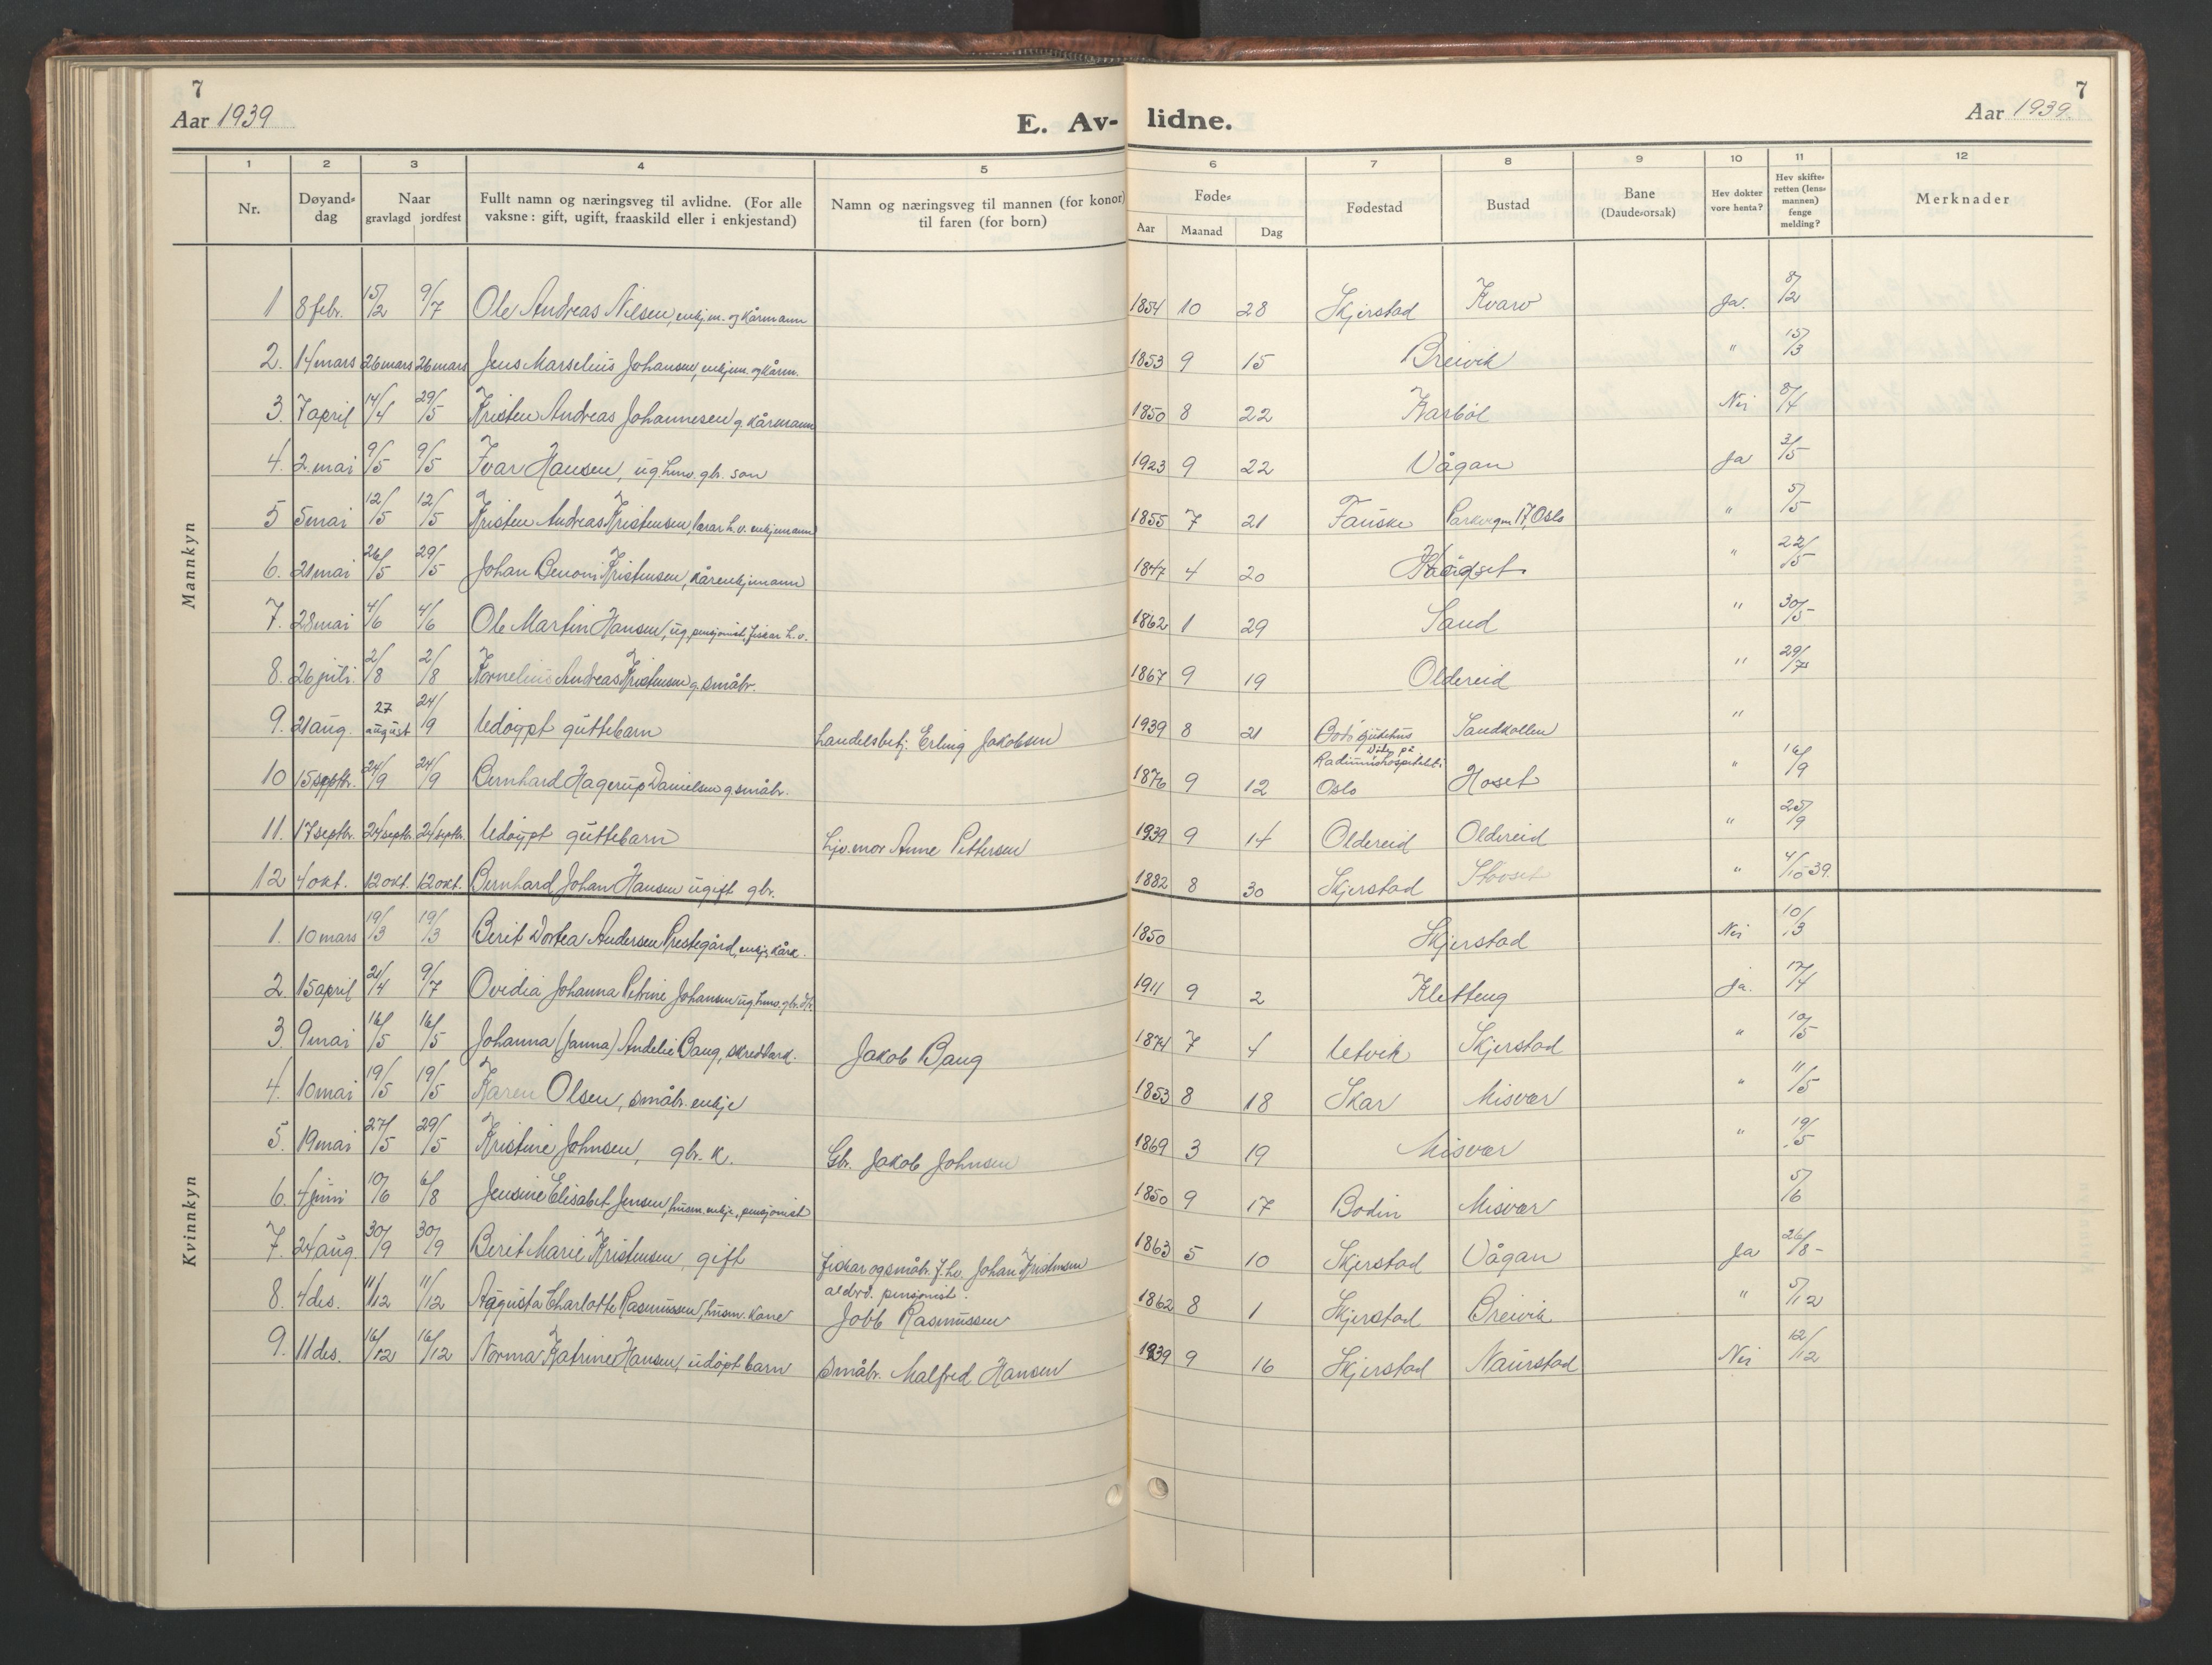 7
Aar 1939
E. Av-
lidne.
7
Aar 1939.
1 2 3 4 5 6 7 8 9 10 11 12
Nr.
Døyand-
dag
Naar
gravlagd jordfest
Fullt namn og næringsveg til avlidne. (For alle
vaksne: gift, ugift, fraaskild eller i enkjestand)
Namn og næringsveg til mannen (for konor)
til faren (for born)
Føde-
Aar Maanad Dag
Fødestad
Bustad
Bane
(Daude-orsak)
Hev dokter
vore henta?
Hev skifte-
retten (lens-
mannen)
fenge
melding?
Merknader
Mannkyn
1 8 febr. 15/2 9/7 Ole Andreas Nilsen, enkjm. og kårmann 1854 10 28 Skjerstad Kvarv Ja. 8/2
2. 14 mars 26 mars 26 mars Jens Marselius Johansen, enkjm. og kårm. 1853 9 15 Breivik " 15/3
3. 7 april 14/4 29/5 Kristen Andreas Johannesen g. kårmann 1850 8 22 Karbøl Nei 8/4
4. 2. mai 9/5 9/5 Ivar Hansen, ug. hmv. gbr. son 1923 9 22 Vågan Ja 3/5
5 5 mai 12/5 12/5 Kristen Andreas Kristensen, lærar h.v. enkjemann 1855 7 21 Fauske Parkvegen 17, Oslo " 5/5
6. 21 mai 26/5 29/5 Johan Benoni Kristensen, kårenkjemann 1847 4 20 " 22/5
7. 28 mai 4/6 4/6 Ole Martin Hansen, ug. pensjonist, fiskar h.v. 1862 1 29 Sand " 30/5
8. 26 juli. 2/8 2/8 Kornelius Andreas Kristensen g. småbr. 1867 9 19 Oldereid " 29/7
9. 21 aug. 27 august 24/9 Udøypt guttebarn handelsbetj. Erling Jakobsen 1939 8 21 Bodø sjukehus Sandkollen "
10 15 septbr. 24/9 24/9 Bernhard Hagerup Danielsen g. småbr. 1876 9 12 Døde på Radiumshospitalet i Oslo Hoset " 16/9
11. 17 septbr. 24 septbr. 24 septbr. Udøypt guttebarn hjv. mor Anne Pettersen 1939 9 14 Oldereid Oldereid " 25/9
12 4 okt. 12 okt. 12 okt. Bernhard Johan Hansen ugift gbr. 1882 8 30 Skjerstad Støvset " 4/10 39.
Kvinnkyn
1. 10 mars 19/3 19/3 Berit Dortea Andersen Prestegård, enkje, kårk. 1850 Skjerstad Nei 10/3
2. 15 april 21/4 9/7 Ovidia Johanna Petrine Johansen ug. hmv. gbr. dtr. 1911 9 2 Kletteng ja. 17/4
3. 9 mai 16/5 16/5 Johanna (Janna) Andelie Bang, skreddark. Jakob Bang 1874 7 4 Utvik Skjerstad " 10/5
4. 10 mai 19/5 19/5 Karen Olsen, småbr. enkje 1853 8 18 Skar Misvær " 11/5
5. 19 mai 27/5 29/5 Kristine Johnsen, gbr. k. Gbr. Jakob Johnsen 1869 3 19 Misvær " 19/5
6. 4 juni 10/6 6/8 Jensine Elisabet Jensen, husm. enkje, pensjonist 1850 9 17 Bodin Misvær 5/6
7. 24 aug. 30/9 30/9 Berit Marie Kristensen, gift fiskar og småbr. f.hv. Johan Kristensen 1863 5 10 Skjerstad Vågan Ja 26/8 -
8. 4 des. 11/12 11/12 Augusta Charlotte Rasmussen, husm. kone aldrd. pensjonist. Jobb Rasmussen 1862 8 1 Skjerstad Breivik " 5/12
9. 11 des. 16/12 16/12 Norma Katrine Hansen, udøpt barn Småbr. Malfred Hansen 1939 9 16 Skjerstad Naurstad Nei 12/12